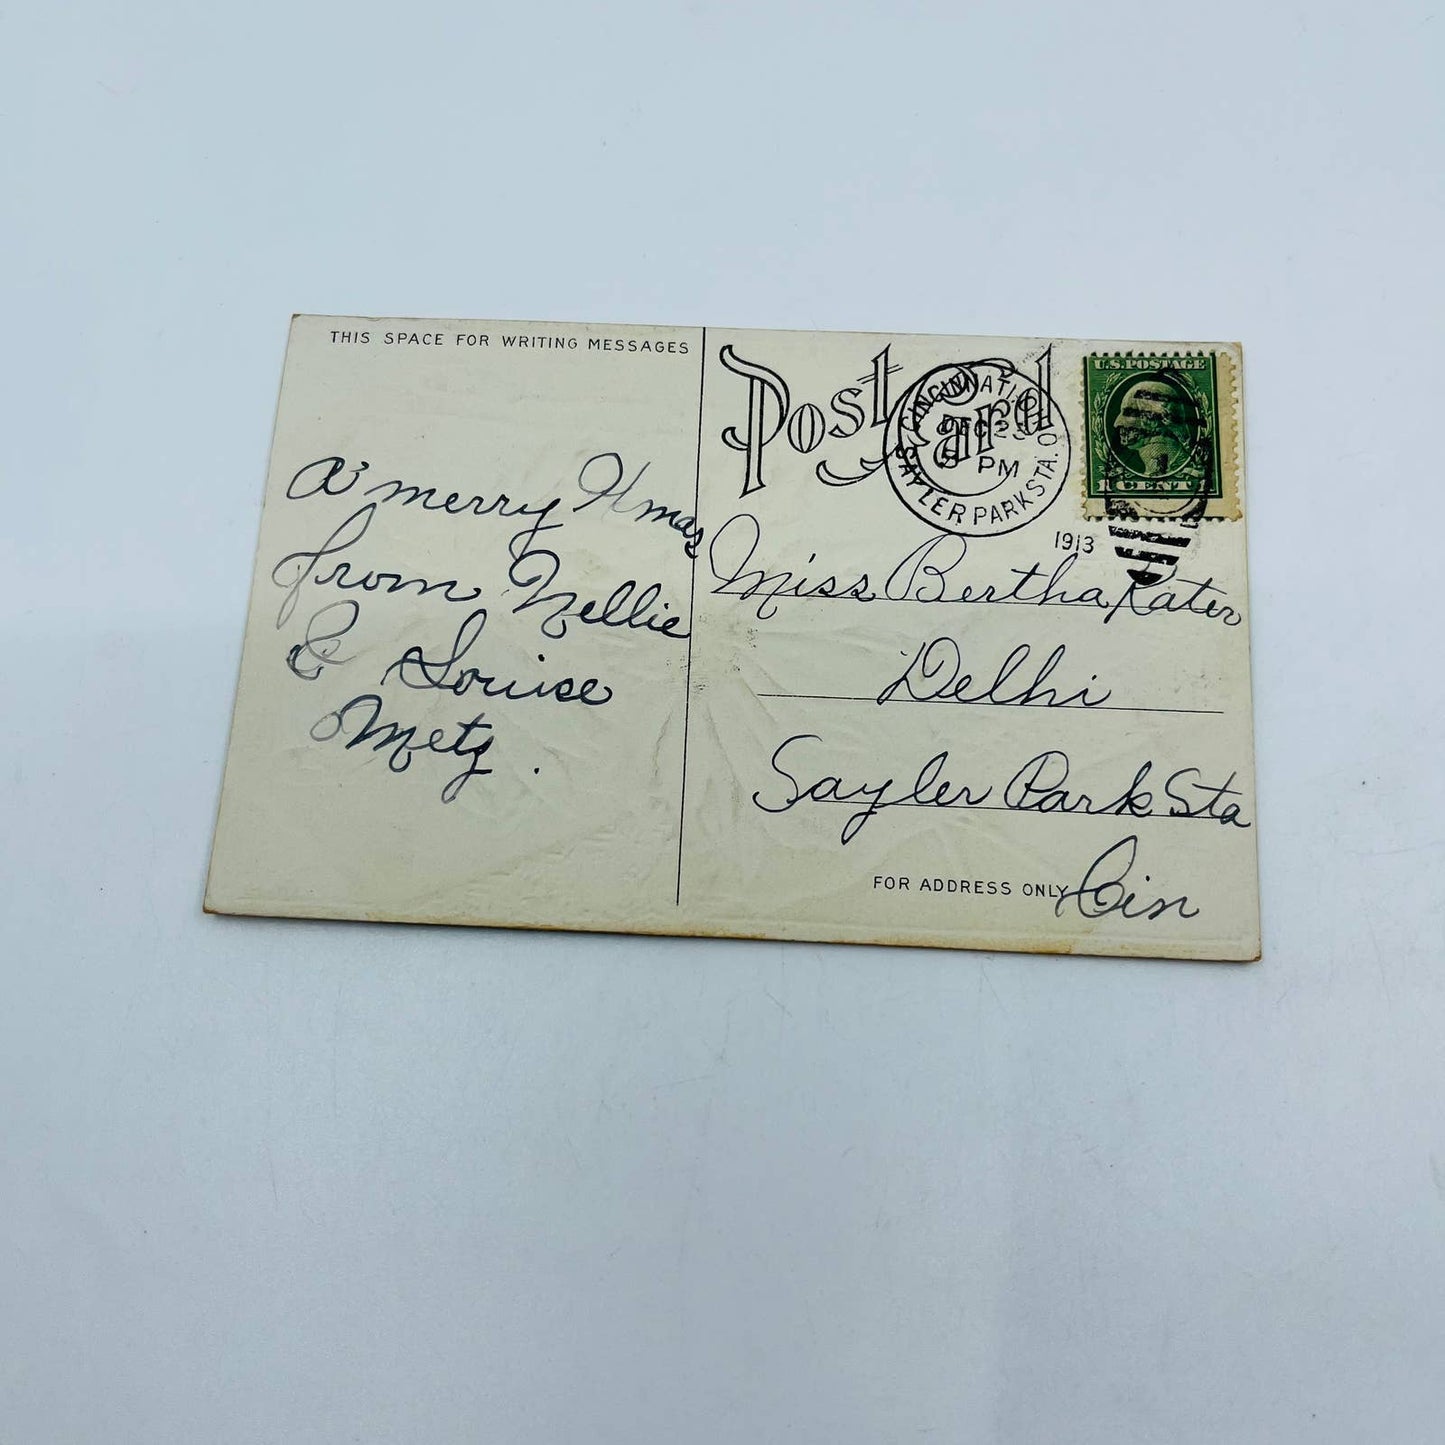 THIS SPACE FOR WRITING MESSAGES
A merry Xmas
from Nellie
& Louise
Metz.
Post Card
CINCINNATI, O.
DEC 23
PM
SAYLER PARK STA.
1913
U.S. POSTAGE
1 CENT 1
Miss Bertha Kater
Delhi
Sayler Park Sta
Cin
FOR ADDRESS ONLY